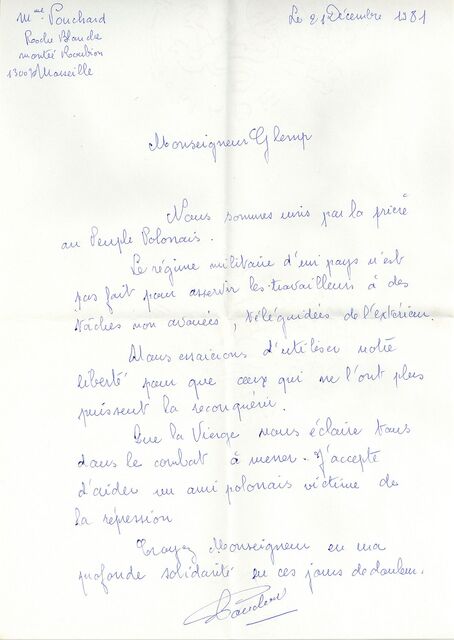 Mme Pouchard
Roche Blanche
montée
13007 Marseille
Le 21 Décembre 1981
Monseigneur Glemp
Nous sommes unis par la prière
au Peuple Polonais.
Le régime militaire d'un pays n'est
pas fait pour asservir les travailleurs à des
tâches non avouées, téléguidées de l'extérieur.
Nous essaierons d'utiliser notre
liberté pour que ceux qui ne l'ont plus
puissent la reconquérir.
Que la Vierge nous éclaire tous
dans le combat à mener. J'accepte
d'aider un ami polonais victime de
la répression
Croyez Monseigneur en ma
profonde solidarité en ces jours de douleur.